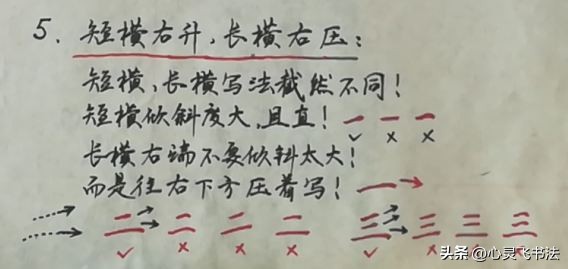 5. 短横右升,长横右压:
短横,长横写法截然不同!
短横倾斜度大,且直! 一 一 一
✓ × ×
长横右端不要倾斜太大!
而是往右下方压着写! 一
二 二 二 二 三 三 三 三
✓ × × × ✓ × × ×
头条 @心灵飞书法